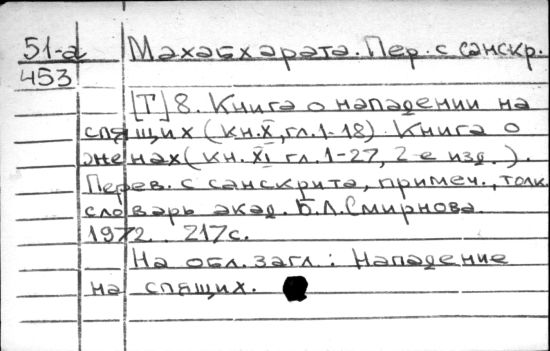 51-а Махабхарата. Пер. с санскр.
453
[Т] 8. Книга о нападении на
спящих (кн. X, гл. 1-18). Книга о
женах (кн. XI гл. 1-27, 2-е изд.).
Перев. с санскрита, примеч., толк.
словарь акад. Б.Л.Смирнова.
1972. 217с.
На обл. загл.: Нападение
на спящих.